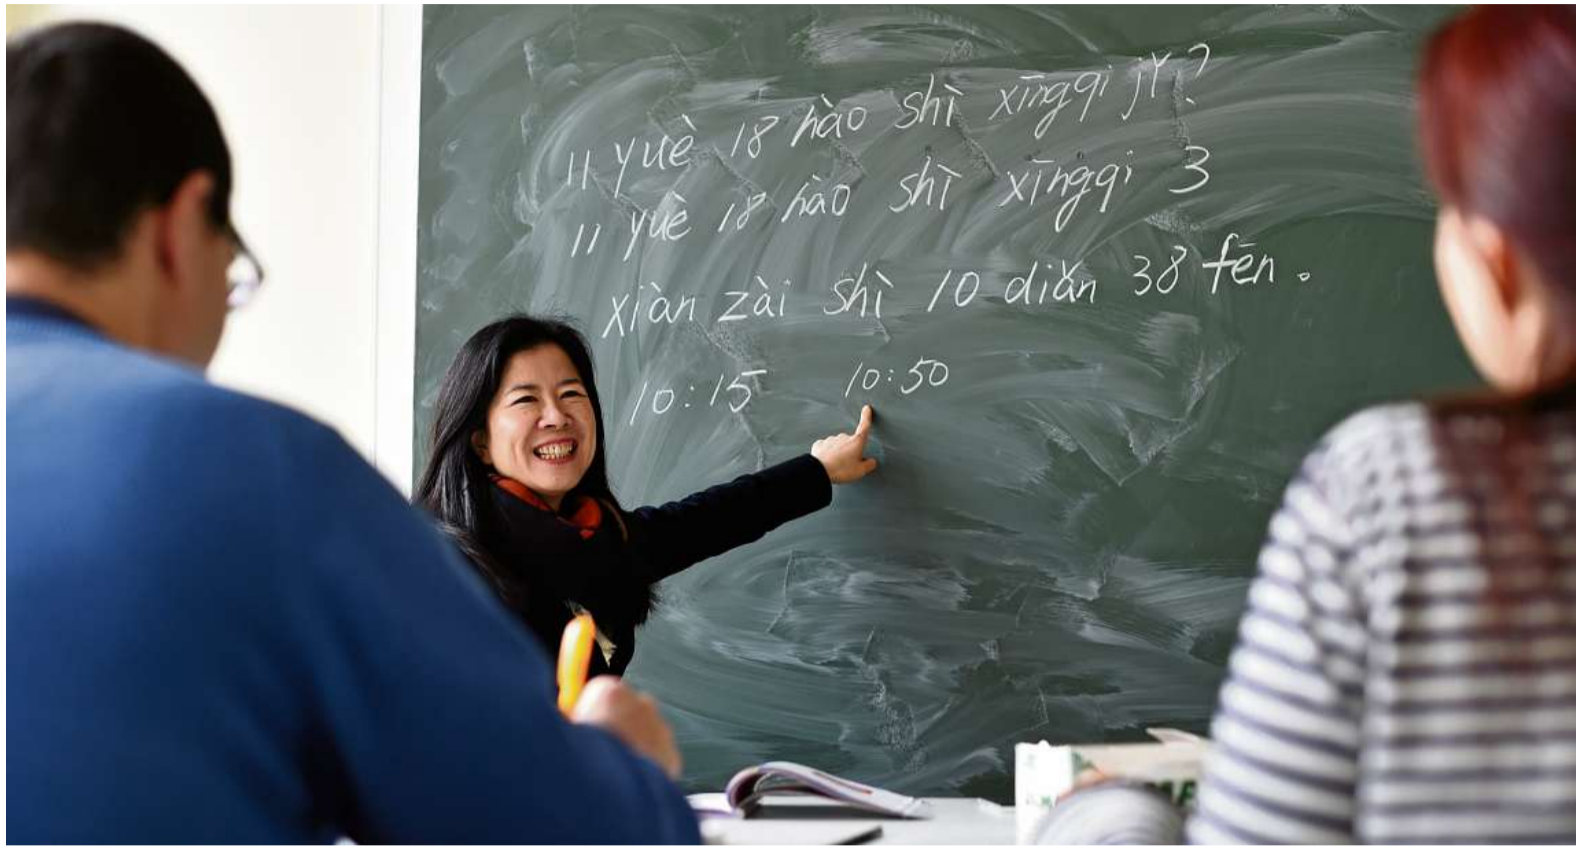 11 yuè 18 hào shì xīngqi jǐ?
11 yuè 18 hào shì xīngqi 3
xiàn zài shì 10 diǎn 38 fēn。
10:15 10:50